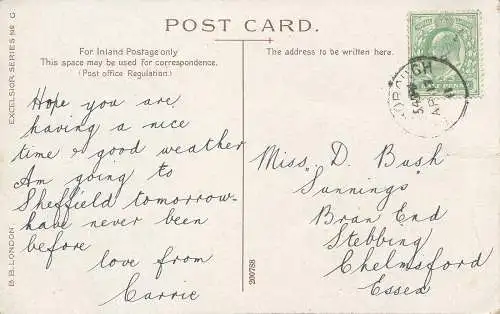 POST CARD.
For Inland Postage only
This space may be used for correspondence.
(Post office Regulation.)
The address to be written here.
EXCELSIOR SERIES No G.
B.B. LONDON
Hope you are
having a nice
time & good weather
Am going to
Sheffield tomorrow-
have never been
before
love from
Carrie
Miss D. Bush
"Sunnings"
Bran End
Stebbing
Chelmsford
Essex